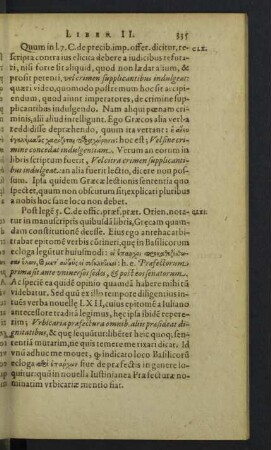 LIBER II. 335
Quum in l. 7. C. de precib. imp. offer. dicitur, re- CLI.
scripta contra ius elicita debere a iudicibus refuta-
ri, nisi forte sit aliquid, quod non lædat alium, &
prosit petenti, vel crimen supplicantibus indulgeat:
quæri video, quomodo postremum hoc sit acci-
piendum, quod aiunt imperatores, de crimine sup-
plicantibus indulgendo. Nam aliqui pœnam cri-
minis, alii aliud intelligunt. Ego Græcos alia ver-
ba reddidisse depræhendo, quum ita vertant:
hoc est; Vel sine cri-
mine concedat indulgentiam. Verum an eorum in
libris scriptum fuerit, Vel citra crimen supplicanti-
bus indulgeat: an alia fuerit lectio, dicere non pos-
sum. Ipsa quidem Græcæ lectionis sententia quo
spectet, quum non obscutum sit; explicari pluribus
a nobis hoc sane loco non debet.
Post legē 3. C. de offic. præf. præt. Orien. nota- CLII.
tur in manuscriptis quibusdā libris, Græcam quan-
dam constitutionē deesse. Eius ego antehac ar-
bitrabar epitomē verbis cōtineri, quę in Basilicorum
ecloga legūtur huiusmodi:
h. e. Præfectorum
prima sit ante universas sedes, & post consenatorum.
Ac specie ea quidē opinio quandā habere mihi tū
videbatur. Sed quū ex illo tempore diligentius in-
tuēs verba novellę LXII, cuius epitomē a Iuliano
antecessore traditā legimus, hęc ipsa ibidē repere-
rim; Vrbicaria præfectura omnib. aliis præsideat di-
gnitatibus, & quę sequuntur: libēter heic quoq. sen-
tentiā mutarim, ne quis temere me rixari dicat. Id
vnū adhuc me movet, q indicato loco Basilicorū
ecloga sive de præfectis in genere lo-
quitur: quū in novella Iustiniana Præfecturæ no-
minatim vrbicariæ mentio fiat.